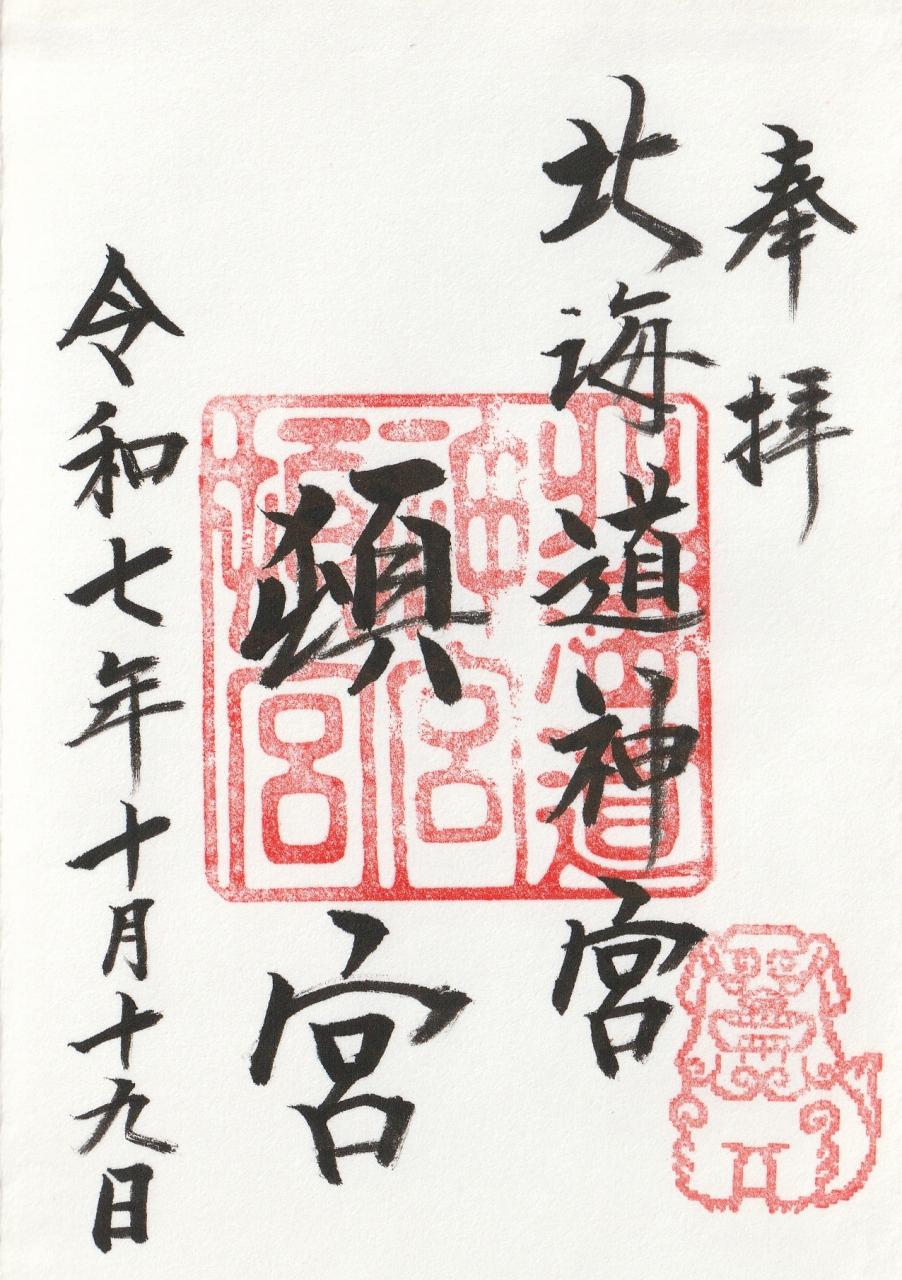 奉拝
北海道神宮
頓宮
令和七年十月十九日
北海道
神宮
頓宮